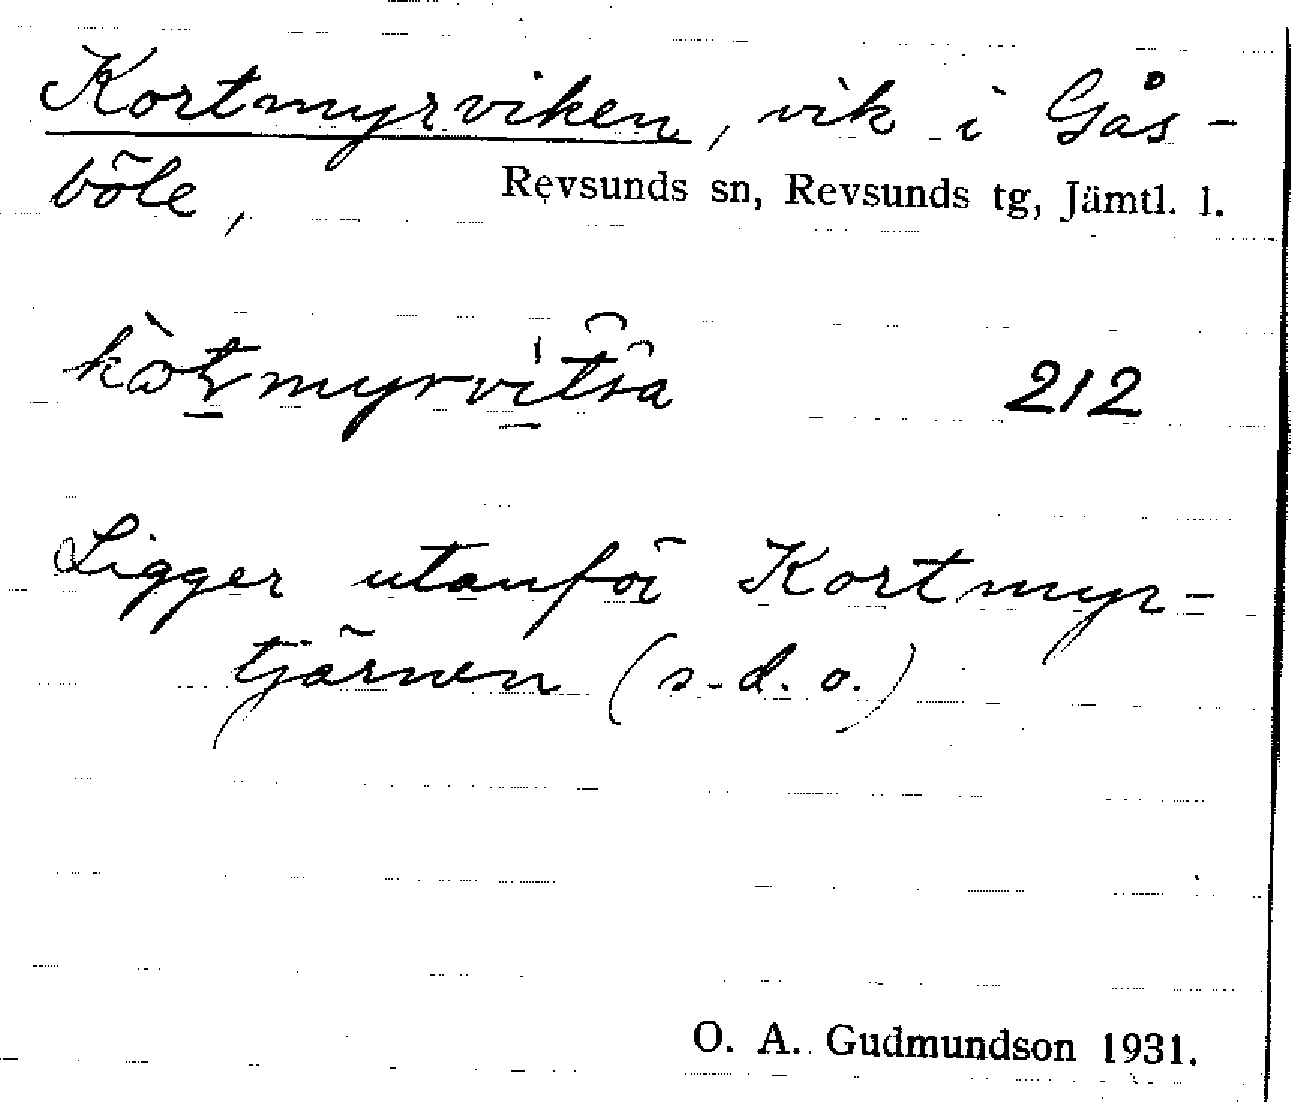 Kortmyrviken, vik i Gås-
böle, Revsunds sn, Revsunds tg, Jämtl. l.
212
Ligger utanför Kortmyr-
tjärnen (s. d. o.)
O. A. Gudmundson 1931.